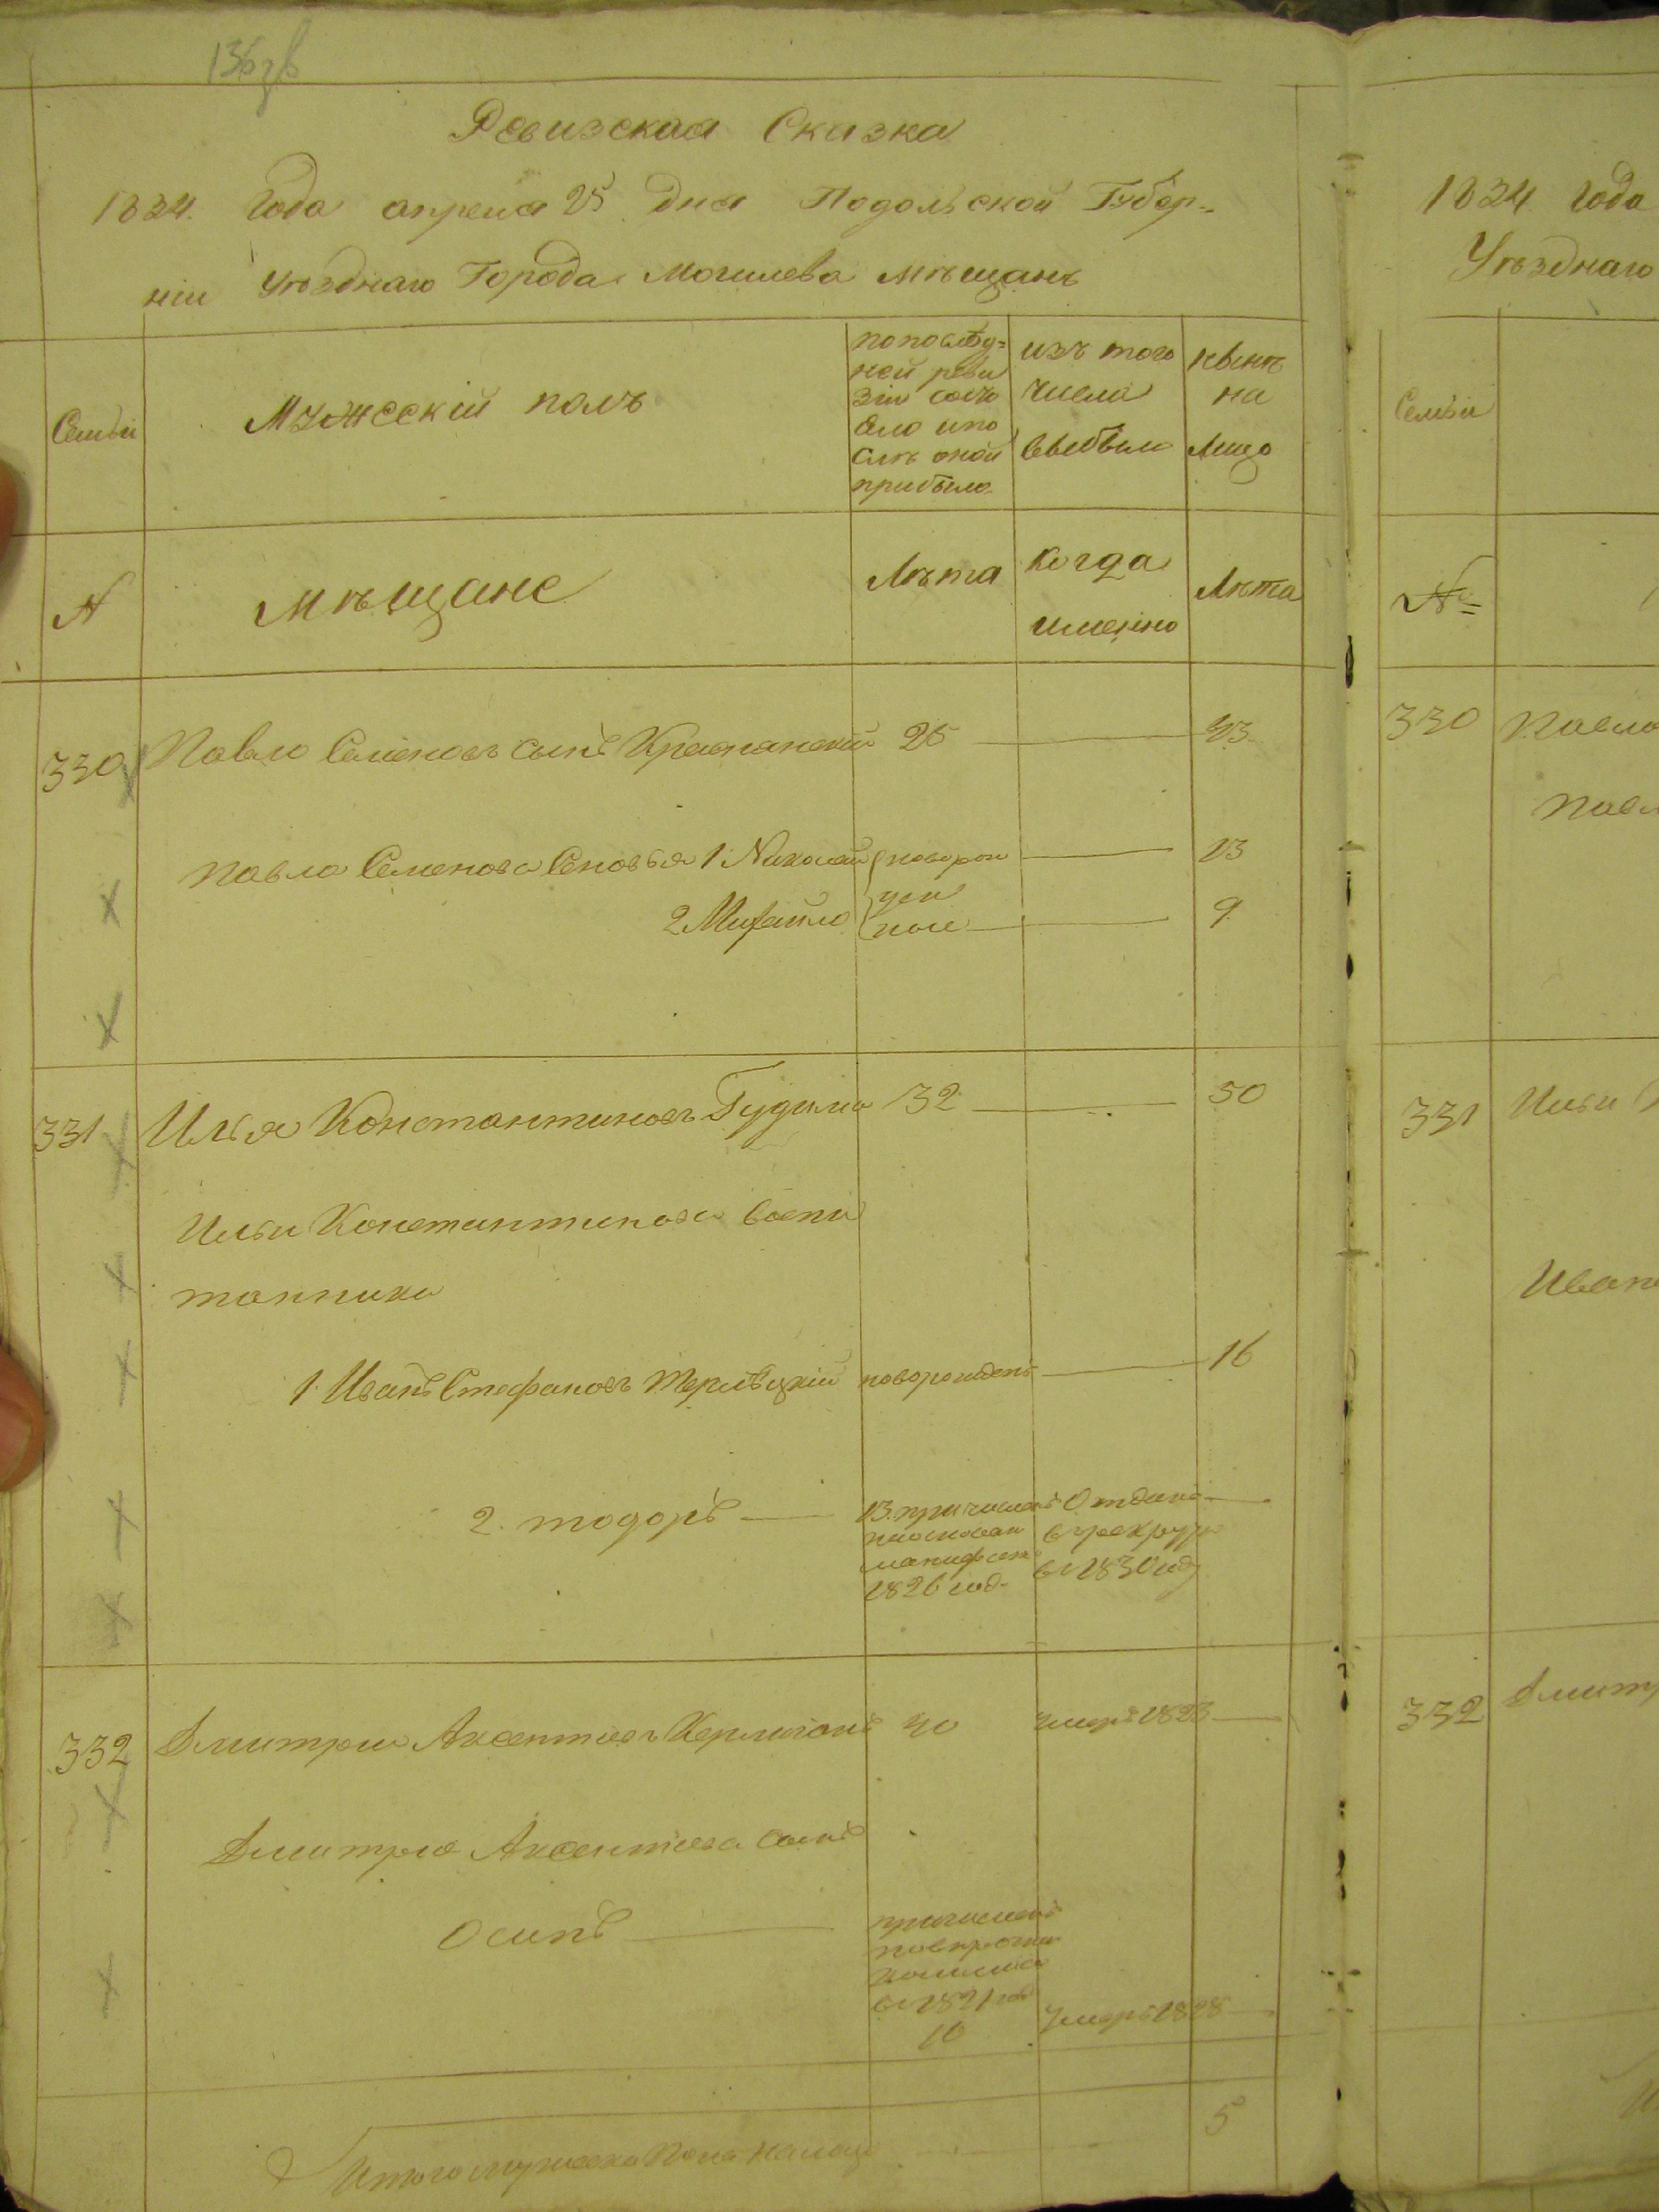 Ревизская Сказка
1834. Года апреля 25 дня Подольской Губер-
ніи Уѣзднаго Города Могилева мѣщанъ
Семьи
Мужескій полъ
попослѣд-
ней реви
зіи сост
ояло и по
слѣ оной
прибыло
изъ того
числа
выбыло
нынѣ
на
лицо
N
мѣщане
Лѣта
Когда
имянно
Лѣта
330 Павло Семеновъ сынъ 25 43
Павла Семенова Сыновья 1 Николай новорож 13
2 Михайло ден ные 9
331 Илья Константиновъ Гудыма 32 50
Ильи Константинова воспи
танники
1 Иванъ Стефановъ Терлѣцкій новорожденъ 16
2. тодоръ 13. причисленъ Отданъ
манифест в рекруты
1826 год в 1830 году
332 Дмитрии Аксентиевъ 40 умеръ 1823
Дмитрия Аксентиева сынъ
Осипъ причисленъ
в 1821 год
10 Умеръ 1828
Итого мужеска Пола налицо 5
1834 Года
Уѣзднаго
Семьи
№
330 Павла
331 Ильи
332